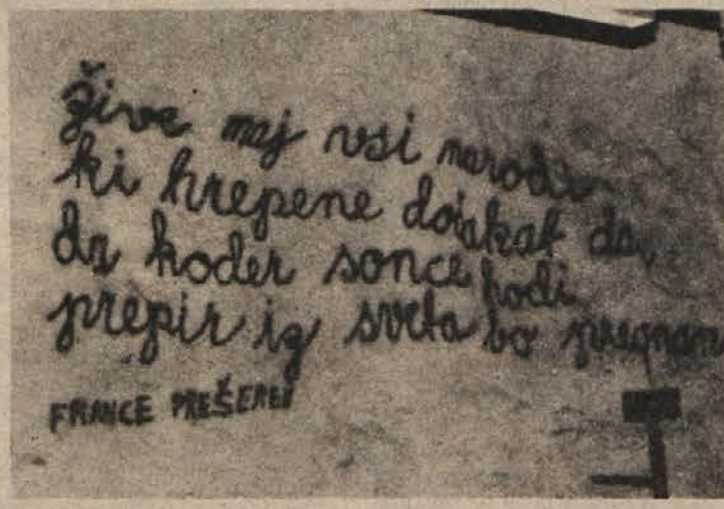 žive naj vsi narodi
ki hrepene dočakat dan,
da koder sonce hodi
prepir iz sveta bo pregnan
FRANCE PREŠEREN